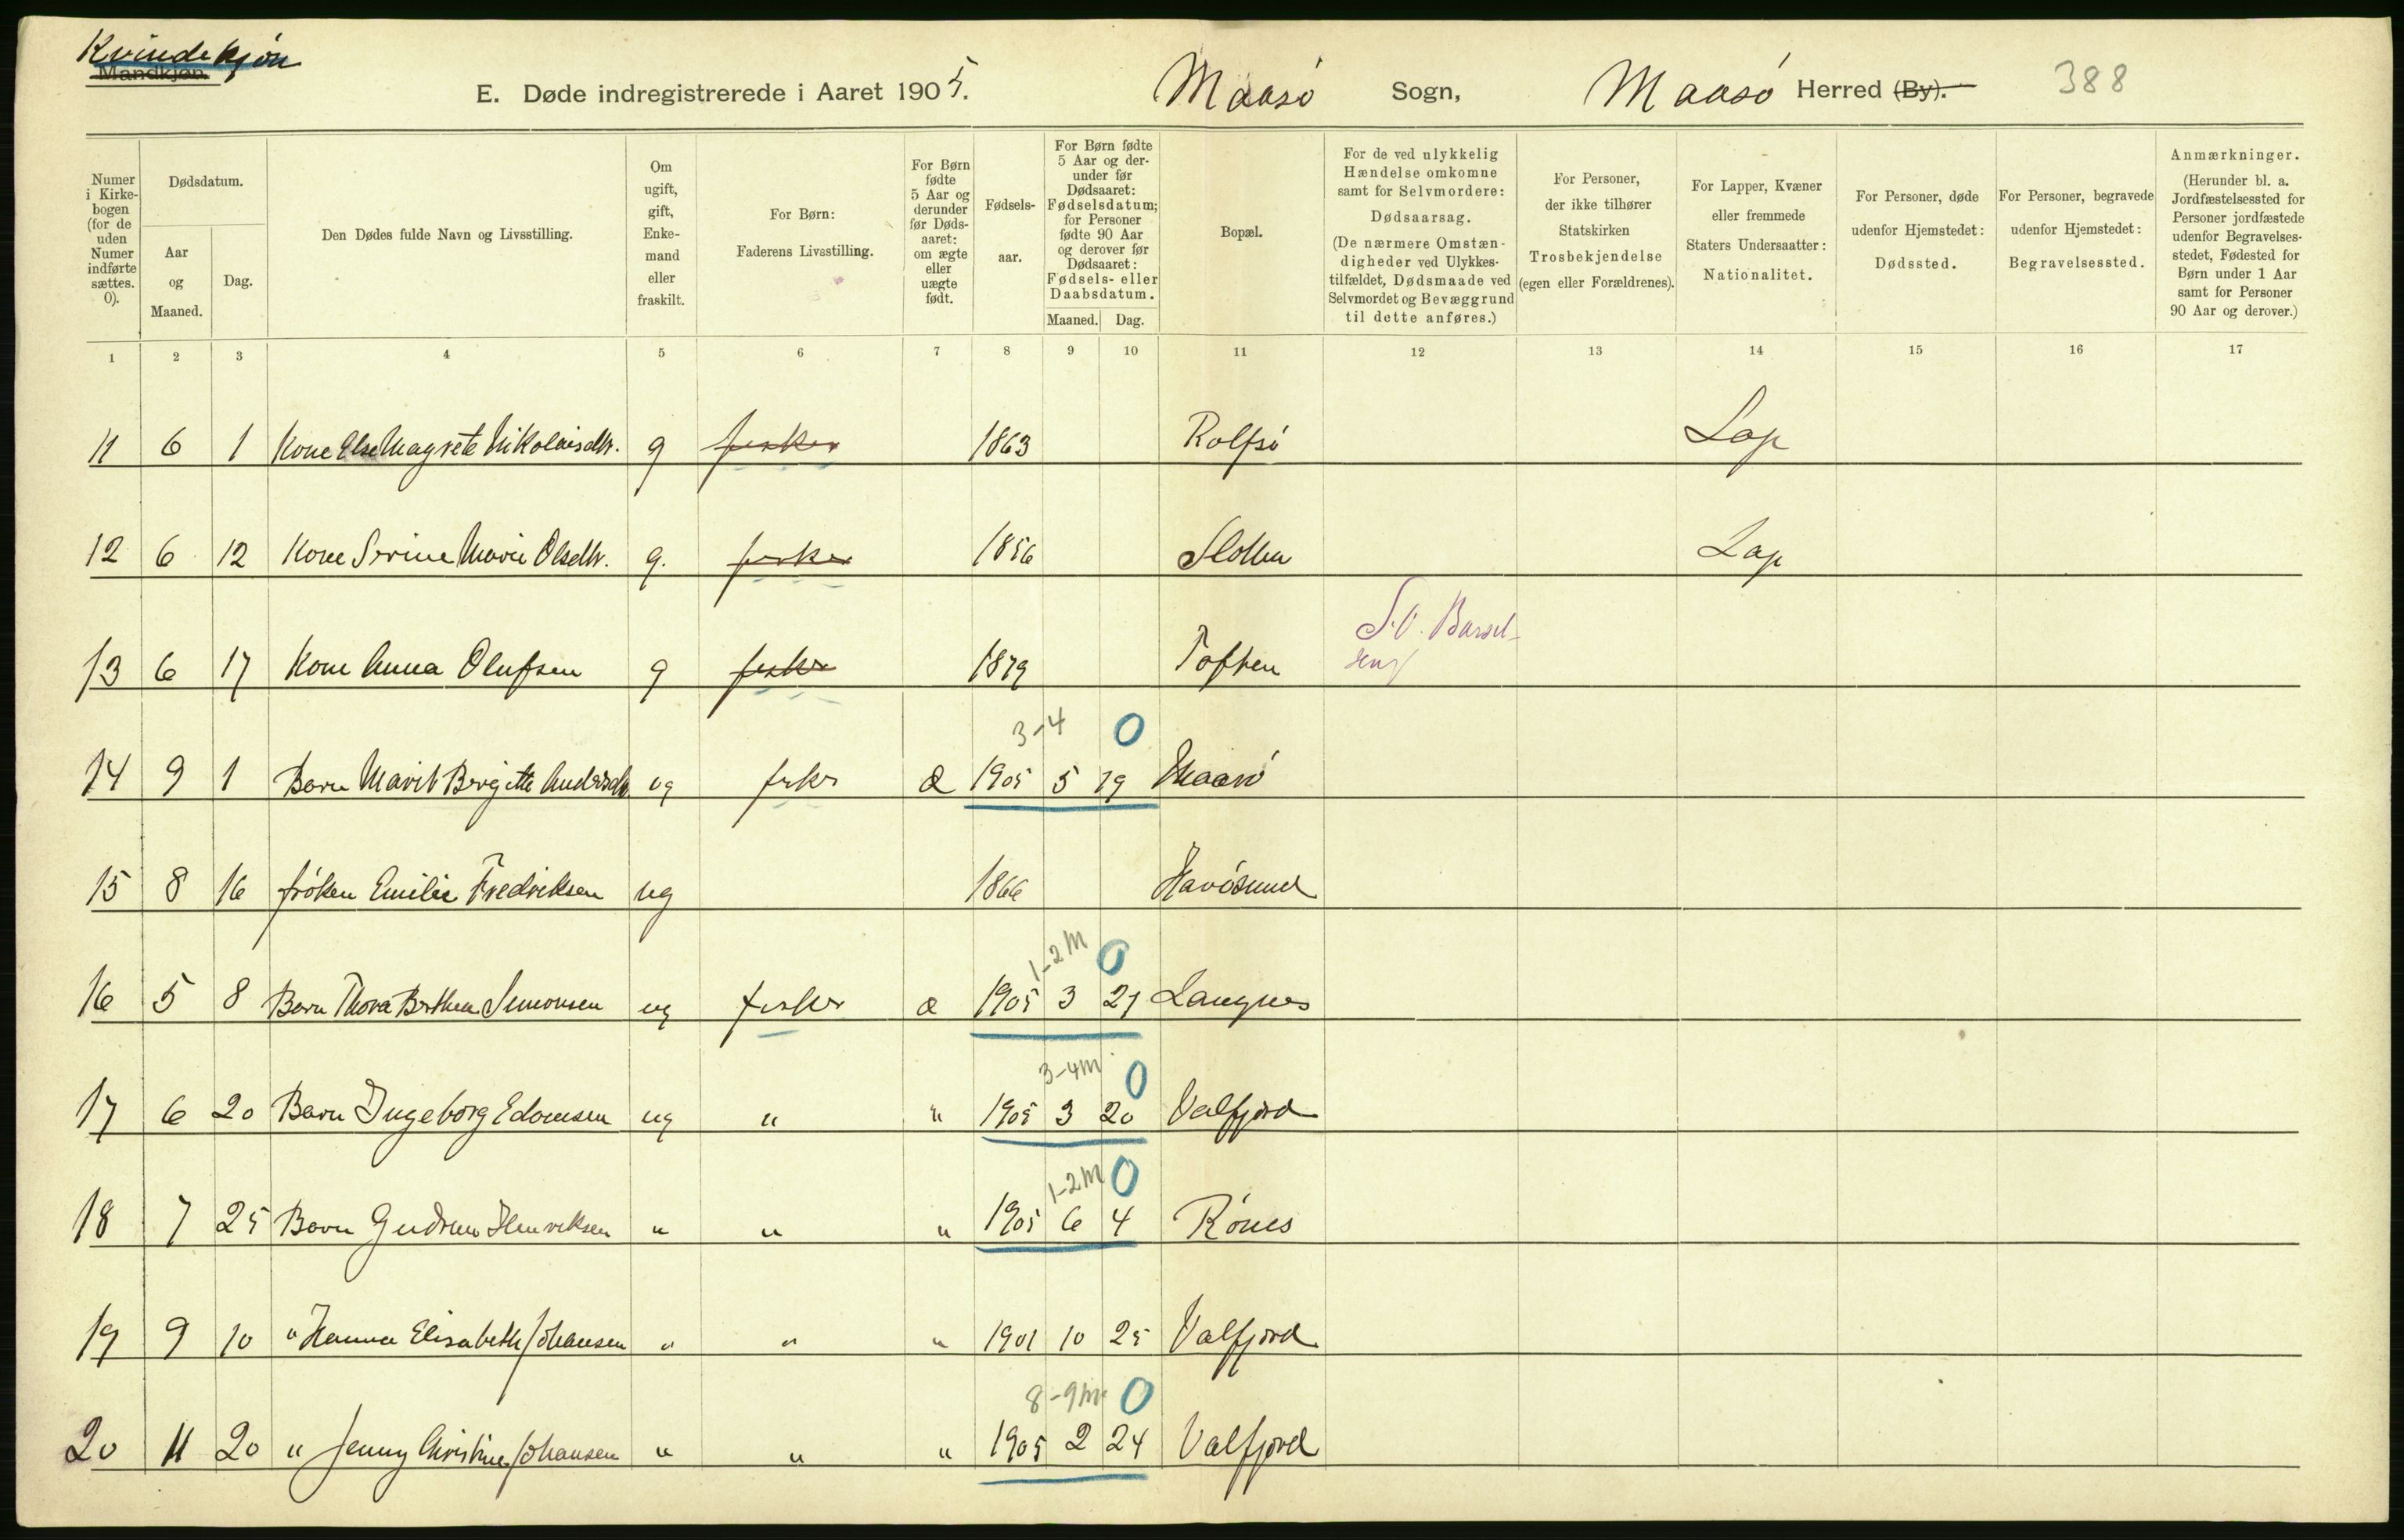 Kvindekjøn
Mandkjøn.
E. Døde indregistrerede i Aaret 1905. Maasø Sogn, Maasø Herred (By). 388
Numer i Kirkebogen (for de uden Numer indførte sættes. 0).
Dødsdatum.
Aar og Maaned.
Dag.
Den Dødes fulde Navn og Livsstilling.
Om ugift, gift, Enkemand eller fraskilt.
For Børn: Faderens Livsstilling.
For Børn fødte 5 Aar og derunder før Dødsaaret: om ægte eller uægte født.
Fødselsaar.
For Børn fødte 5 Aar og derunder før Dødsaaret: Fødselsdatum; for Personer fødte 90 Aar og derover før Dødsaaret: Fødsels- eller Daabsdatum.
Maaned. Dag.
Bopæl.
For de ved ulykkelig Hændelse omkomne samt for Selvmordere: Dødsaarsag. (De nærmere Omstændigheder ved Ulykkestilfældet, Dødsmaade ved Selvmordet og Bevæggrund til dette anføres.)
For Personer, der ikke tilhører Statskirken Trosbekjendelse (egen eller Forældrenes).
For Lapper, Kvæner eller fremmede Staters Undersaatter: Nationalitet.
For Personer, døde udenfor Hjemstedet: Dødssted.
For Personer, begravede udenfor Hjemstedet: Begravelsessted.
Anmærkninger. (Herunder bl. a. Jordfæstelsessted for Personer jordfæstede udenfor Begravelsesstedet, Fødested for Børn under 1 Aar samt for Personer 90 Aar og derover.)
1 2 3 4 5 6 7 8 9 10 11 12 13 14 15 16 17
11 6 1 Kone Else Magrete Nikolaisdtr. g fisker 1863 Rolfsø Lap
12 6 12 Kone Serine Marie Olsdtr. g. fisker 1856 Lap
S.V. Barsel-
13 6 17 Kone Anna Olufsen g fisker 1879
3-4 0
14 9 1 Barn Marit Bergitte Andersdtr ug fisker Æ 1905 5 19 Maasø
15 8 16 frøken Emilie Fredriksen ug 1866 Havøsund
1-2 M 0
16 5 8 Barn Thora Simonsen ug fisker æ 1905 3 21 Langnes
3-4 M 0
17 6 20 Barn Ingeborg ug " " 1905 3 20 Valfjord
1-2 M 0
18 7 25 Barn Gudrun Henriksen " " " 1905 6 4 Rønes
19 9 10 " Hanna Elisabeth Johansen " " " 1901 10 25 Valfjord
8-9 m 0
20 11 20 " Jenny Christine Johansen " " " 1905 2 24 Valfjord